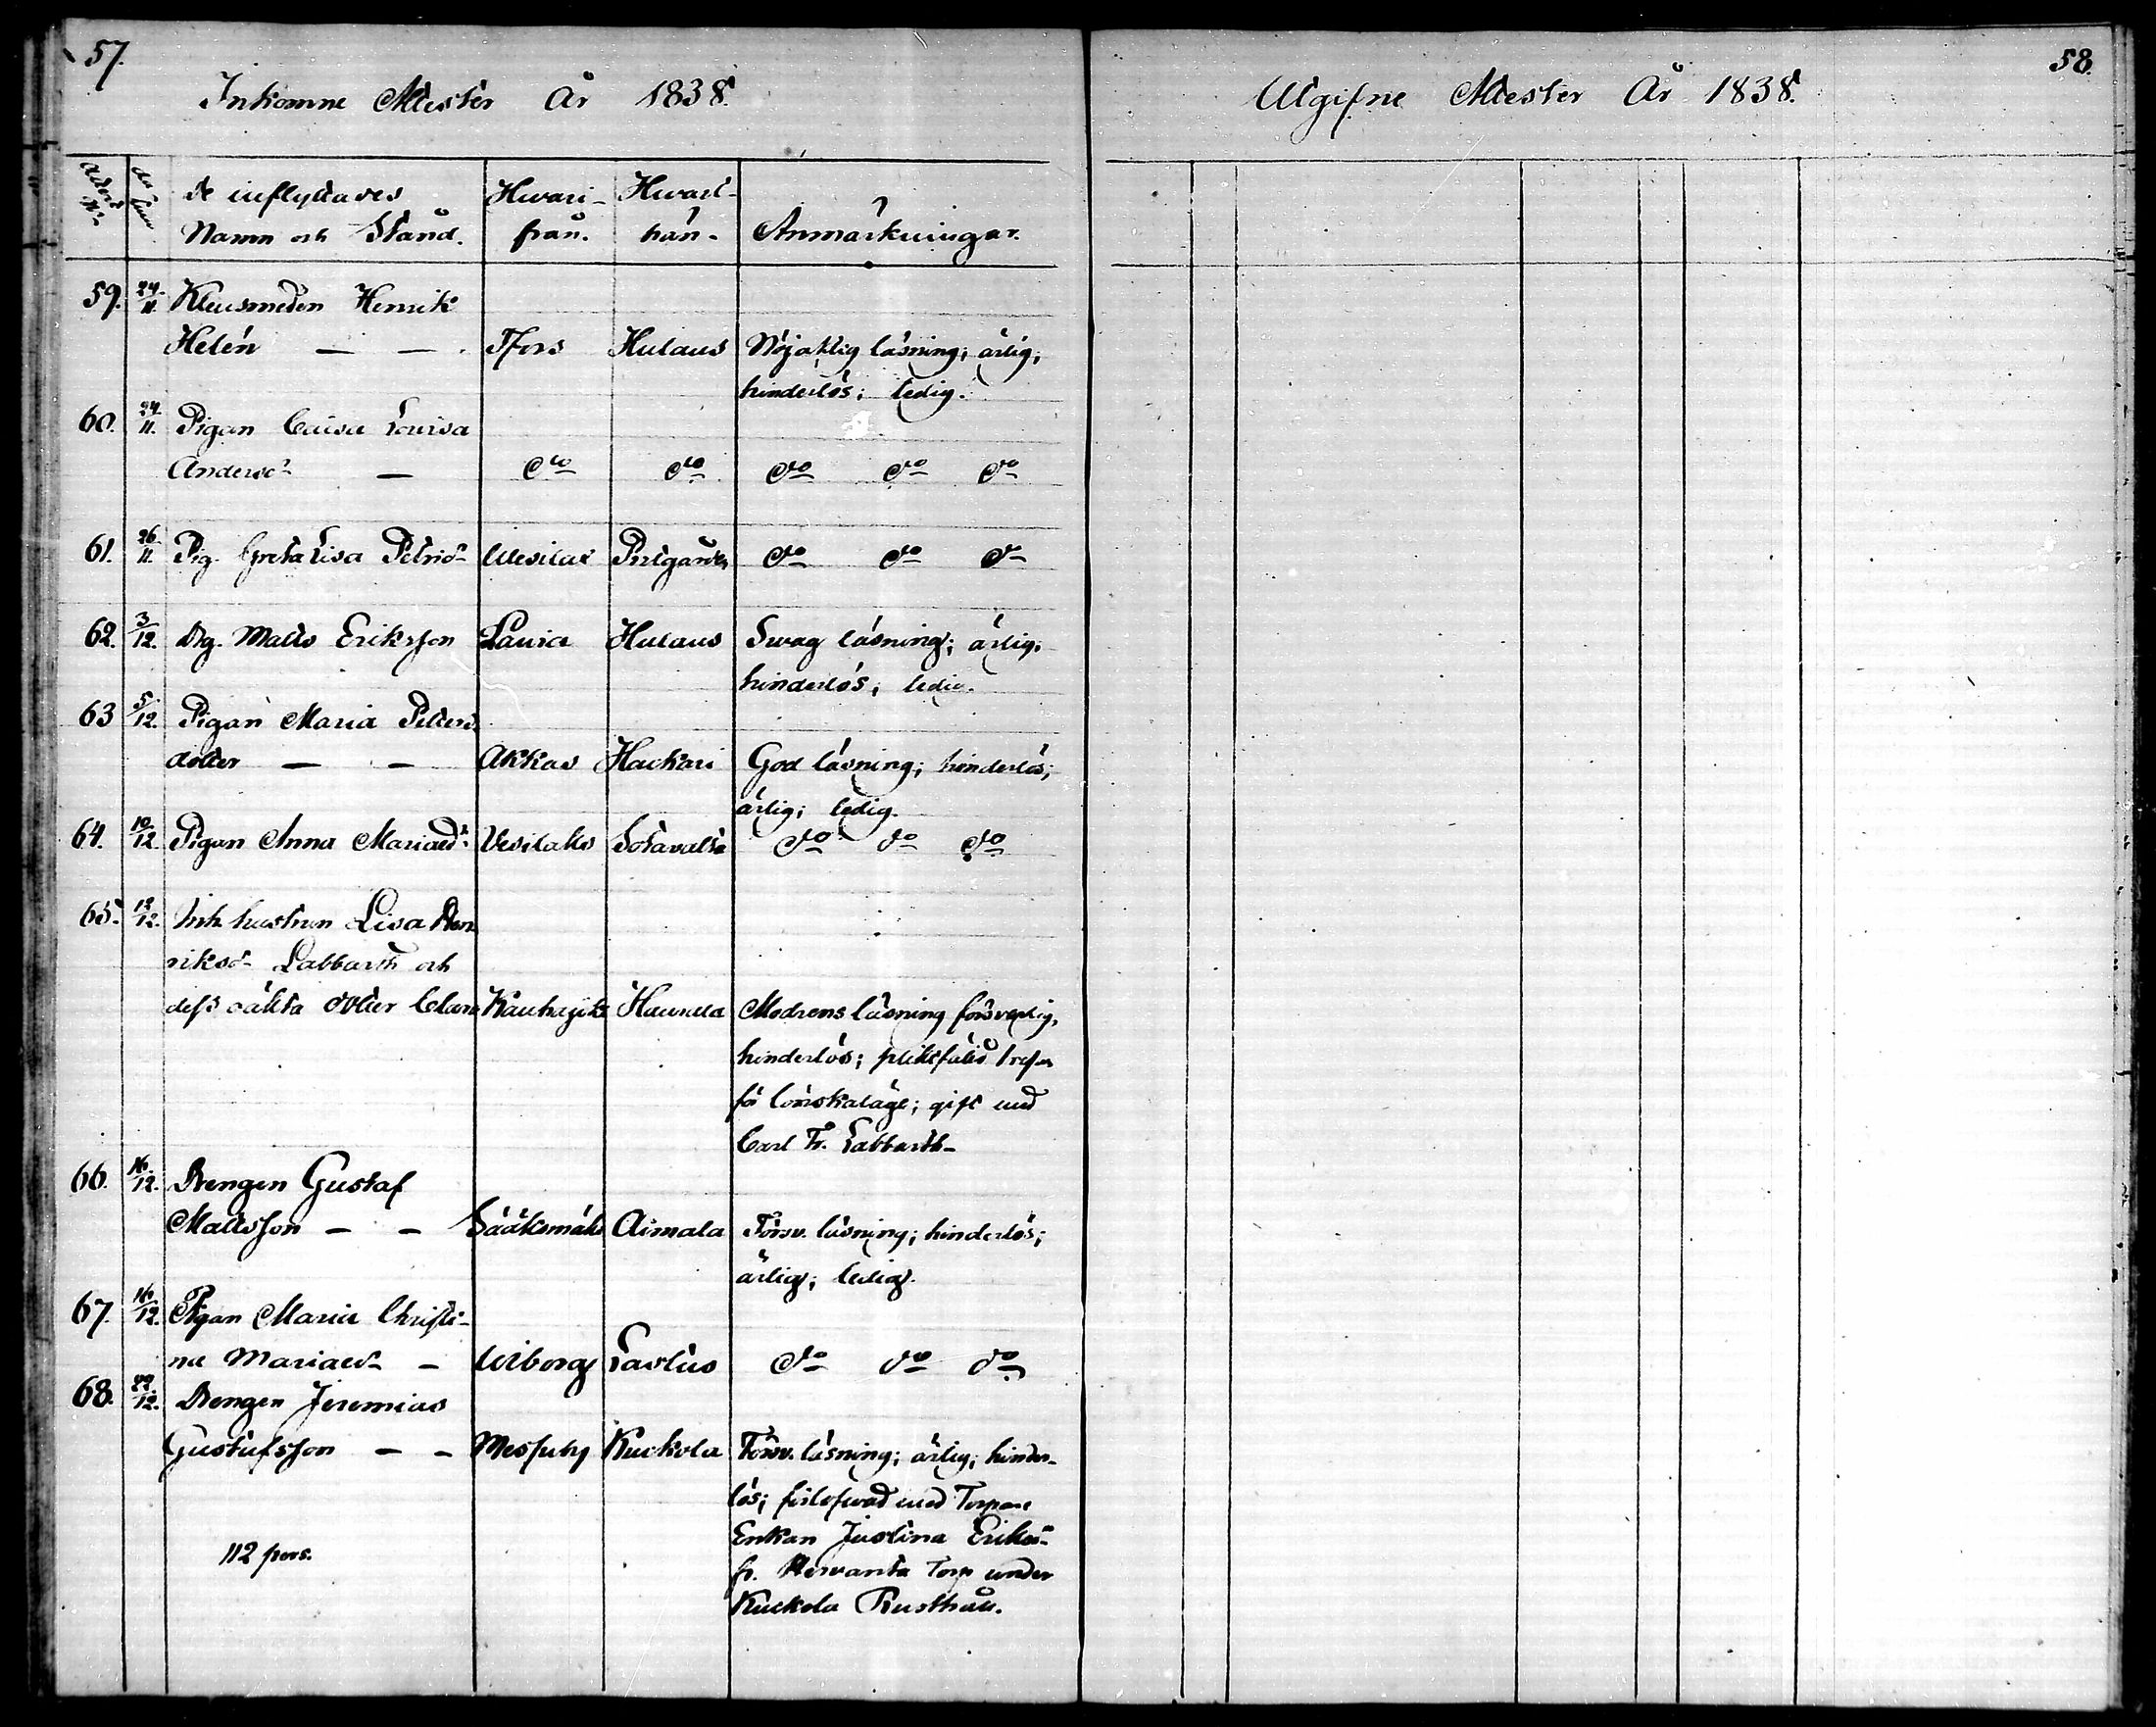 57.
Inkomne Attester År 1838.
Attest N:o
datum
de inflyttades
Namn och Stånd.
Hvari-
från.
Hvart-
hän.
Anmärkningar.
59. 24/11. Klensmeden Henrik
Helén — — Tfors Hulaus Nöjaktig läsning; ärlig;
hinderlös; ledig.
60. 24/11. Pigan Caisa Lovisa
Andersd:r — do do do do do
61. 26/11. Pig. Greta Lisa Petrid:r Wesilax do do do
62. 3/12. Dg. Matts Eriksson Hulaus Svag läsning; ärlig;
hinderlös; ledig.
63 5/12. Pigan Maria Petters
dotter — — Akkas Hackari God läsning; hinderlös;
ärlig; ledig.
64. 10/12. Pigan Anna Mariaed:r Vesilaks Sotavalta do do do
65. 12/12. Inh. hustrun Lisa Hen
riksd:r Labbarth och
dess oäkta dotter Clara Modrens läsning försvarlig,
hinderlös; pliktfälld 1 resa
för lönskaläge; gift med
Carl Fr. Labbarth.
66. 16/12. Drengen Gustaf
Mattsson — — Sääksmäki Aimala Försv. läsning; hinderlös;
ärlig; ledig.
67. 16/12. Pigan Maria Christi-
na Mariaed:r — Wiborg do do do
68. 29/12. Drengen Jeremias
Gustafsson — — Messuby Kuckola Försv. läsning; ärlig; hinder-
lös; förlofwad med Torpare
Enkan Justina Eriksd:r
fr. Hervanta Torp under
Kuckola Rusthåll.
112 pers.
58.
Utgifne Attester År 1838.